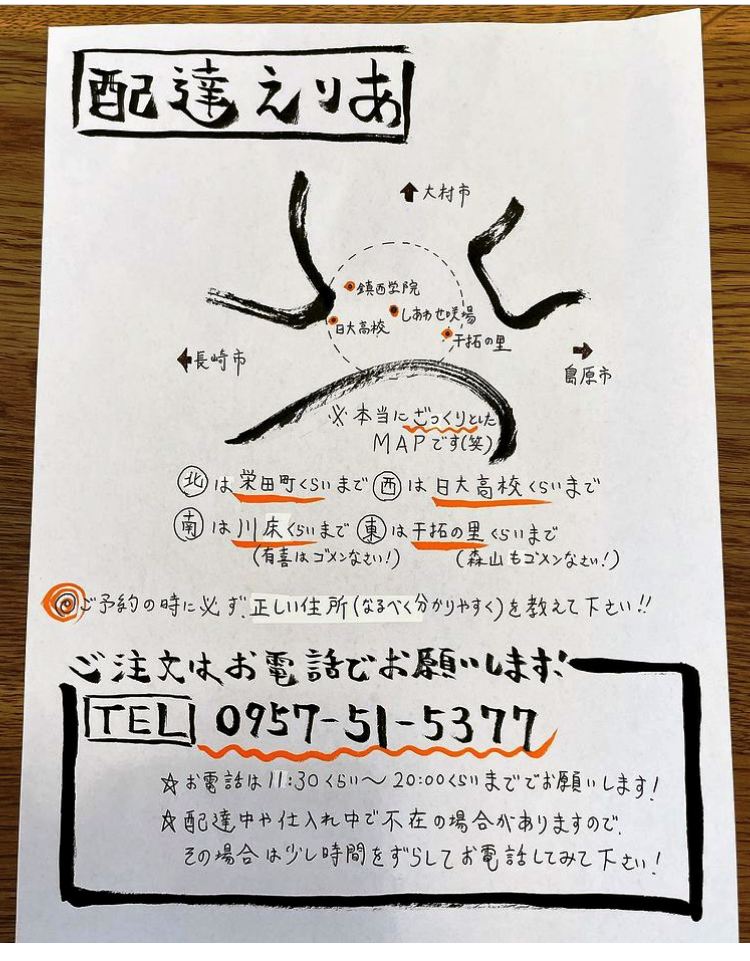 配達えりあ
↑大村市
鎮西学院
しあわせ咲場
日大高校
干拓の里
←長崎市
→
島原市
※本当にざっくりとした
MAPです(笑)
北は栄田町くらいまで 西は日大高校くらいまで
南は川床くらいまで 東は干拓の里くらいまで
(有喜はゴメンなさい!) (森山もゴメンなさい!)
◎ご予約の時に必ず、正しい住所(なるべく分かりやすく)を教えて下さい!!
ご注文はお電話でお願いします!
TEL 0957-51-5377
☆お電話は11:30くらい〜20:00くらいまででお願いします!
☆配達中や仕入れ中で不在の場合がありますので、
その場合は少し時間をずらしてお電話してみて下さい!